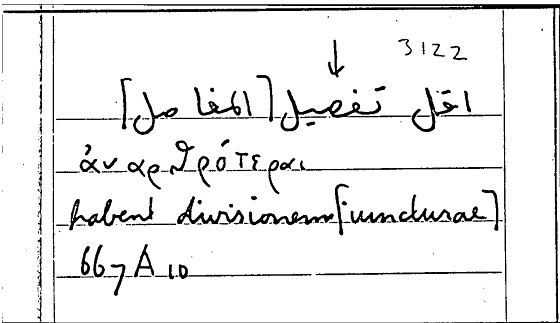 3122
↓
اقل تفصيل [المفاصل]
ἀναρθρότεραι
habent divisionem [iuncturae]
667 A 10